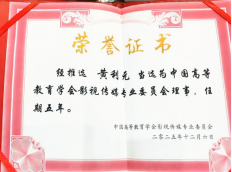 荣誉证书
经推选 黄利元 当选为中国高等
教育学会影视传媒专业委员会理事，任
期五年。
中国高等教育学会影视传媒专业委员会
二〇二五年十二月六日